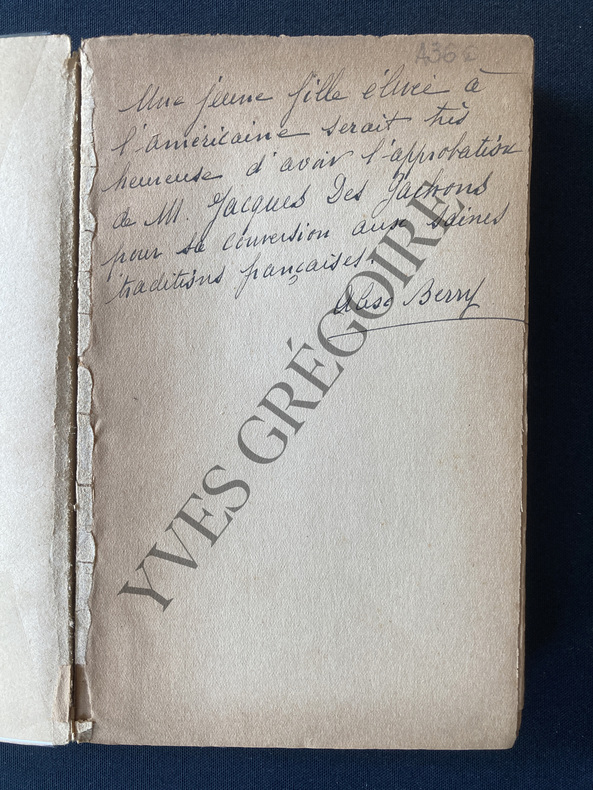 A36€
Une jeune fille élevée à
l'américaine serait très
heureuse d'avoir l'approbation
de M. Jacques Des Gachons
pour sa conversion aux saines
traditions françaises.
Berry
YVES GRÉGOIRE